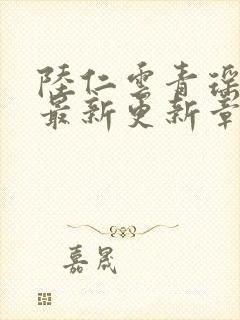 陸仁雲青瑶
最新更新章
嘉晟